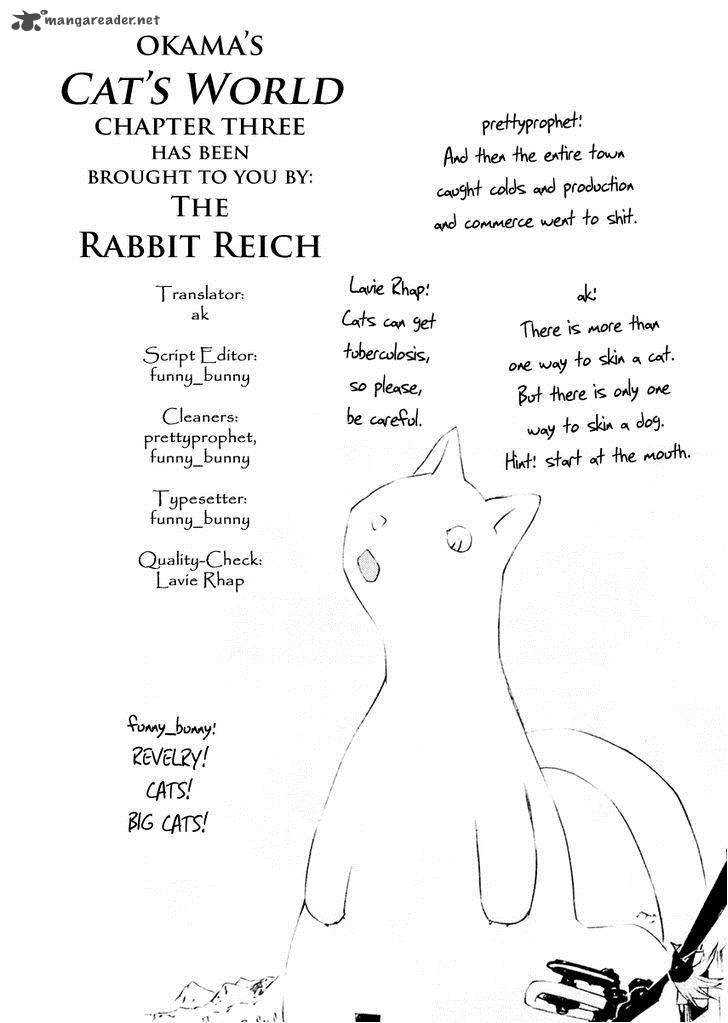 mangareader.net
OKAMA'S
CAT'S WORLD
CHAPTER THREE
HAS BEEN
BROUGHT TO YOU BY:
THE
RABBIT REICH
Translator:
ak
Script Editor:
funny_bunny
Cleaners:
prettyprophet,
funny_bunny
Typesetter:
funny_bunny
Quality-Check:
Lavie Rhap
prettyprophet:
And then the entire town
caught colds and production
and commerce went to shit.
Lavie Rhap:
Cats can get
tuberculosis,
so please,
be careful.
ak:
There is more than
one way to skin a cat.
But there is only one
way to skin a dog.
Hint: start at the mouth.
funny_bunny:
REVELRY!
CATS!
BIG CATS!